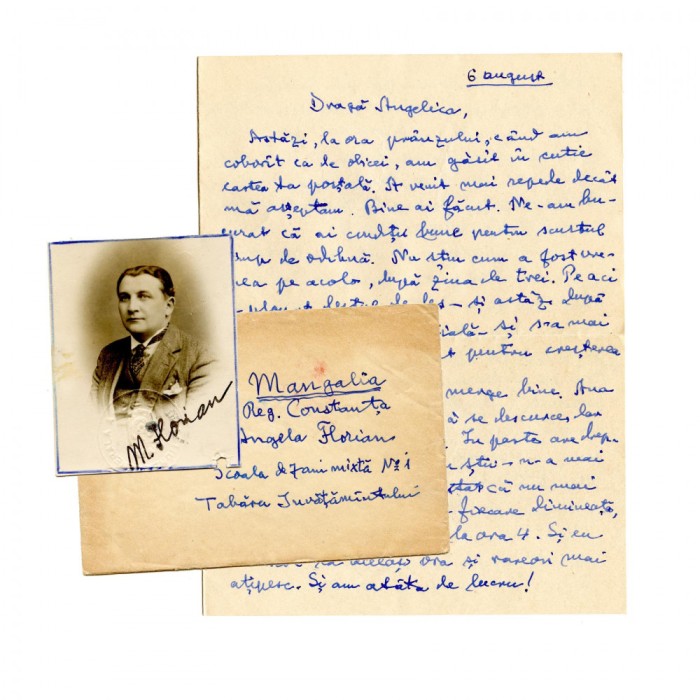 6 august
Dragă Angelica,
Astăzi, la ora prânzului, când am
coborît ca de obicei, am găsit în cutie
cartea ta poștală. A venit mai repede decât
mă așteptam. Bine ai făcut. Ne-am bu-
curat că ai condiții bune pentru scurtul
timp de odihnă. Nu știu cum a fost vre-
mea pe acolo, după ziua de trei. Pe aci
și astăzi după
și s-a mai
pentru creșterea
merge bine. Ana
să se descurce
În parte are drep-
știu - n-a mai
că nu mai
fiecare dimineață,
la ora 4. Și eu
ora și rareori mai
ațipesc. Și am atâta de lucru!
M Florian
Mangalia
Reg. Constanța
Angela Florian
Școala de 7 ani mixtă No 1
Tabăra Învățămîntului